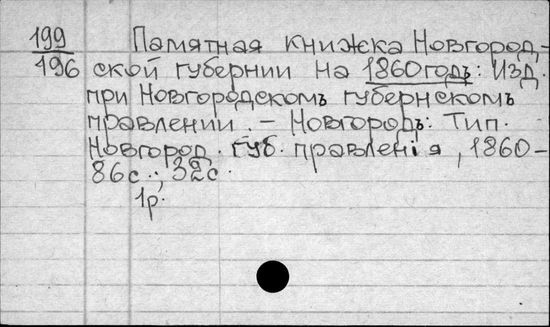 199 Памятная книжка Новгород-
196 ской губернии на 1860годъ: Изд.
при Новгородскомъ губернскомъ
правлении. – Новгородъ: Тип.
Новгород. губ. правленія, 1860–
86с.; 32с.
1р.